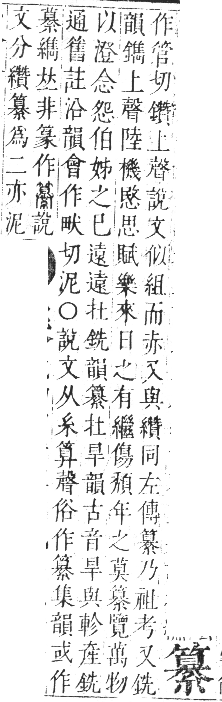 纂
作管切鑽上聲說文似組而赤又與纘同左傳纂乃祖考又銑
韻鐫上聲陸機愍思賦樂來日之有繼傷頹年之莫纂覽萬物
以澄念怨伯姊之已遠遠在銑韻纂在旱韻古音旱與軫產銑
通舊註沿韻會作畎切泥○說文从糸算聲俗作䉵集韻或作
纂鐫𠀤非篆作纂說
文分纘纂為二亦泥